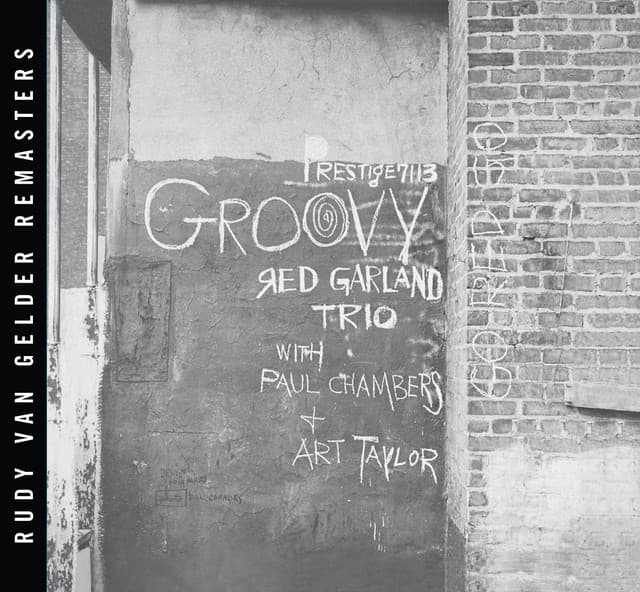 RUDY VAN GELDER REMASTERS
PRESTIGE 7113
GROOVY
RED GARLAND
TRIO
WITH
PAUL CHAMBERS
+
ART TAYLOR
GO RED GO
DESIGN